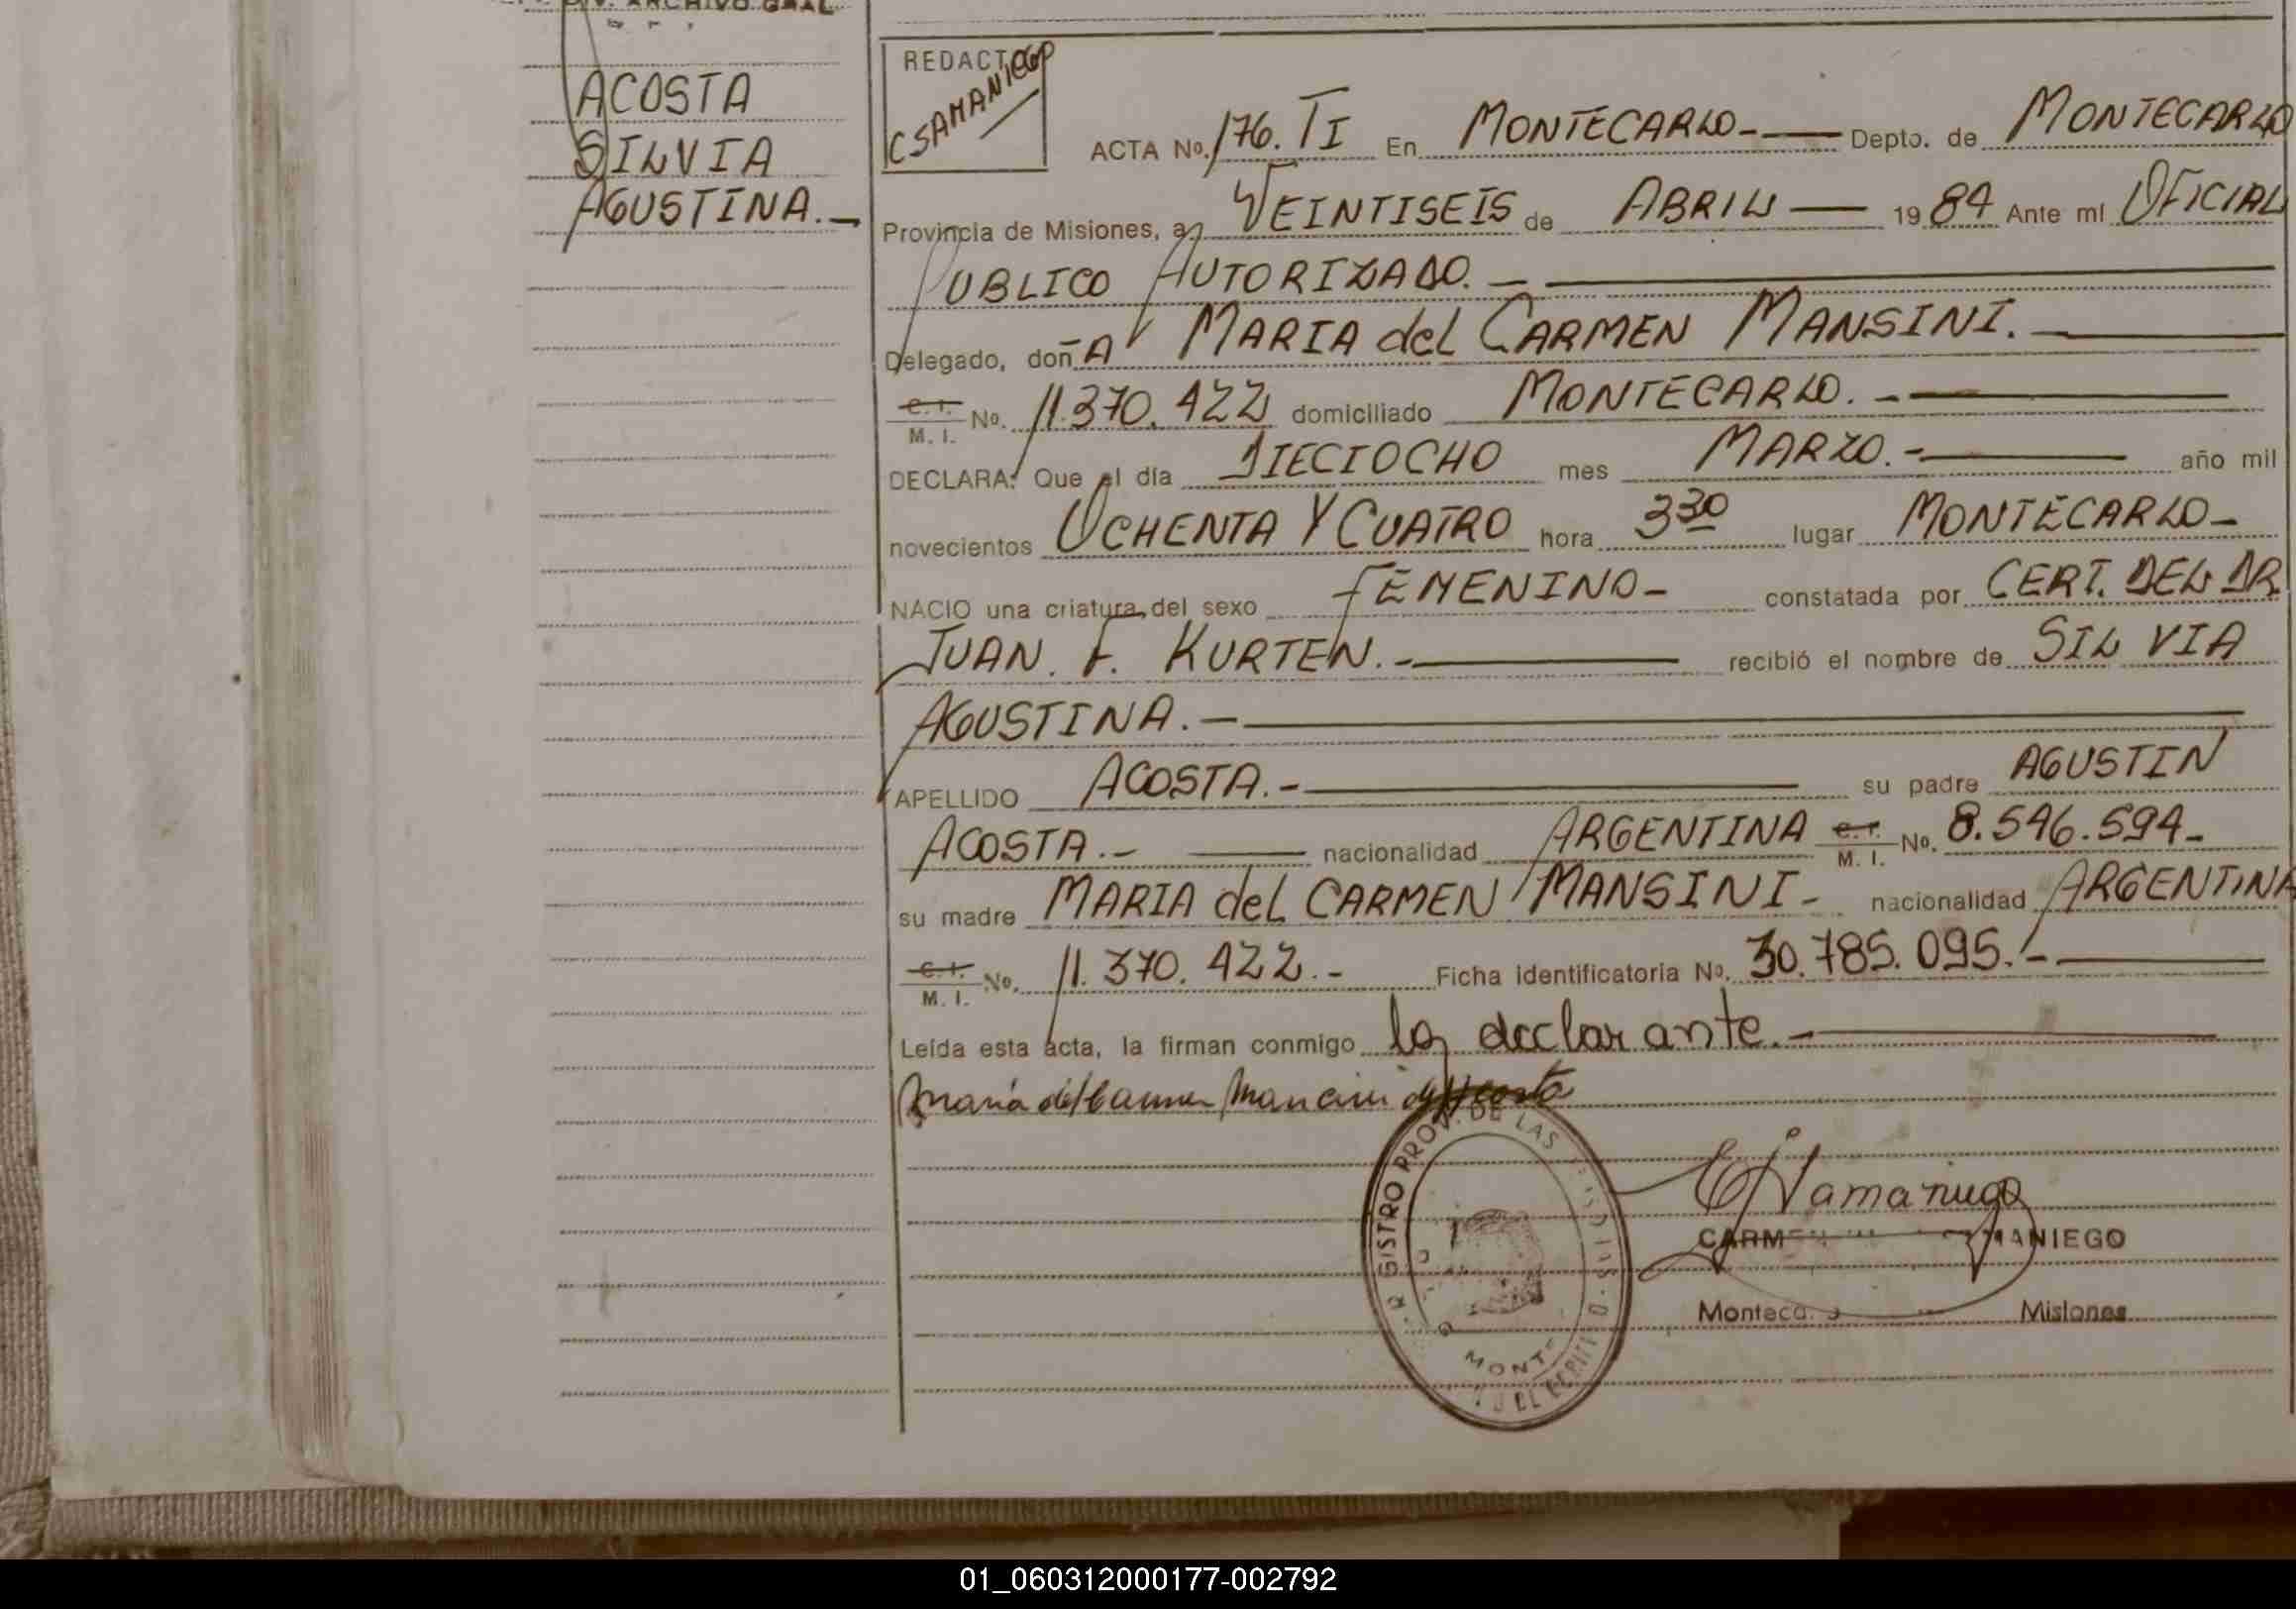 DIV. ARCHIVO GRAL.
ACOSTA
SILVIA
AGUSTINA.-
REDACTO
CSAMANIEGO
ACTA No. 176. TI En MONTECARLO- Depto. de MONTECARLO
Provincia de Misiones, a VEINTISEIS de ABRIL 1984 Ante mí OFICIAL
PUBLICO AUTORIZADO.-
Delegado, doñA MARIA del CARMEN MANSINI.
C. I. / M. I. No. 11.370.422 domiciliado MONTECARLO.-
DECLARA: Que el día DIECIOCHO mes MARZO.- año mil
novecientos OCHENTA Y CUATRO hora 3 30 lugar MONTECARLO-
NACIO una criatura del sexo FEMENINO- constatada por CERT. DEL DR.
JUAN. F. KURTEN.- recibió el nombre de SILVIA
AGUSTINA.-
APELLIDO ACOSTA.- su padre AGUSTIN
ACOSTA.- nacionalidad ARGENTINA C. I. / M. I. No. 8.546.594-
su madre MARIA del CARMEN MANSINI- nacionalidad ARGENTINA
C. I. / M. I. No. 11.370.422.- Ficha identificatoria No. 30.785.095.-
Leída esta acta, la firman conmigo la declarante.-
María del Carmen Mancini de Acosta
PROV. DE LAS
MONT
CARMEN MANIEGO
Monteca Misiones
01_060312000177-002792